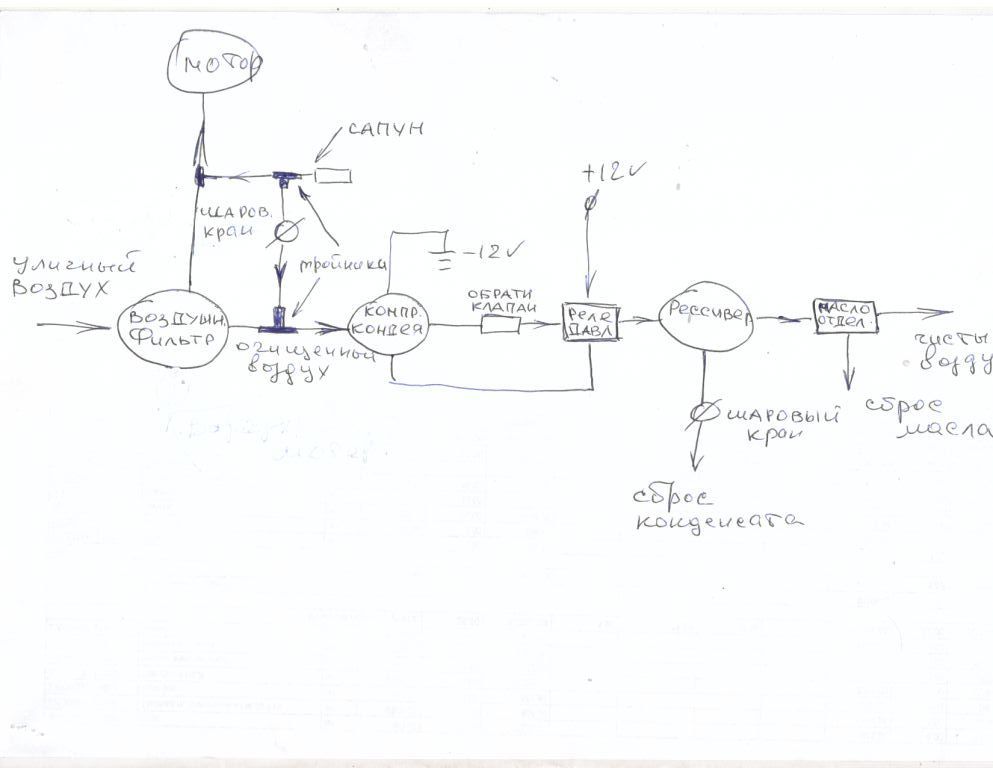 МОТОР
САПУН
+12V
ШАРОВ.
кран
тройники
-12V
УЛИЧНЫЙ
ВОЗДУХ
ВОЗДУШН.
Фильтр
очищенный
воздух
КОМПР.
КОНДЕЯ
ОБРАТН
КЛАПАН
Реле
ДАВЛ.
Рессивер
МАСЛО
ОТДЕЛ.
чисты
возду
ШАРОВЫЙ
кран
сброс
масла
сброс
конденсата